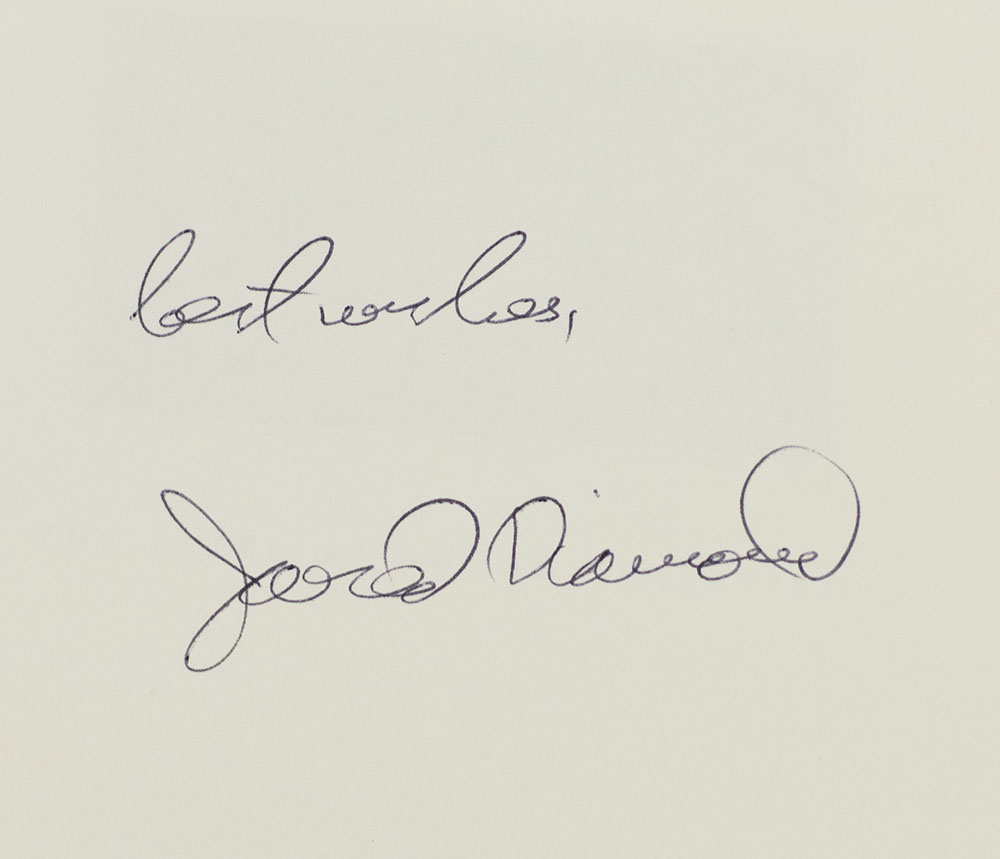 best wishes,
Jared Diamond